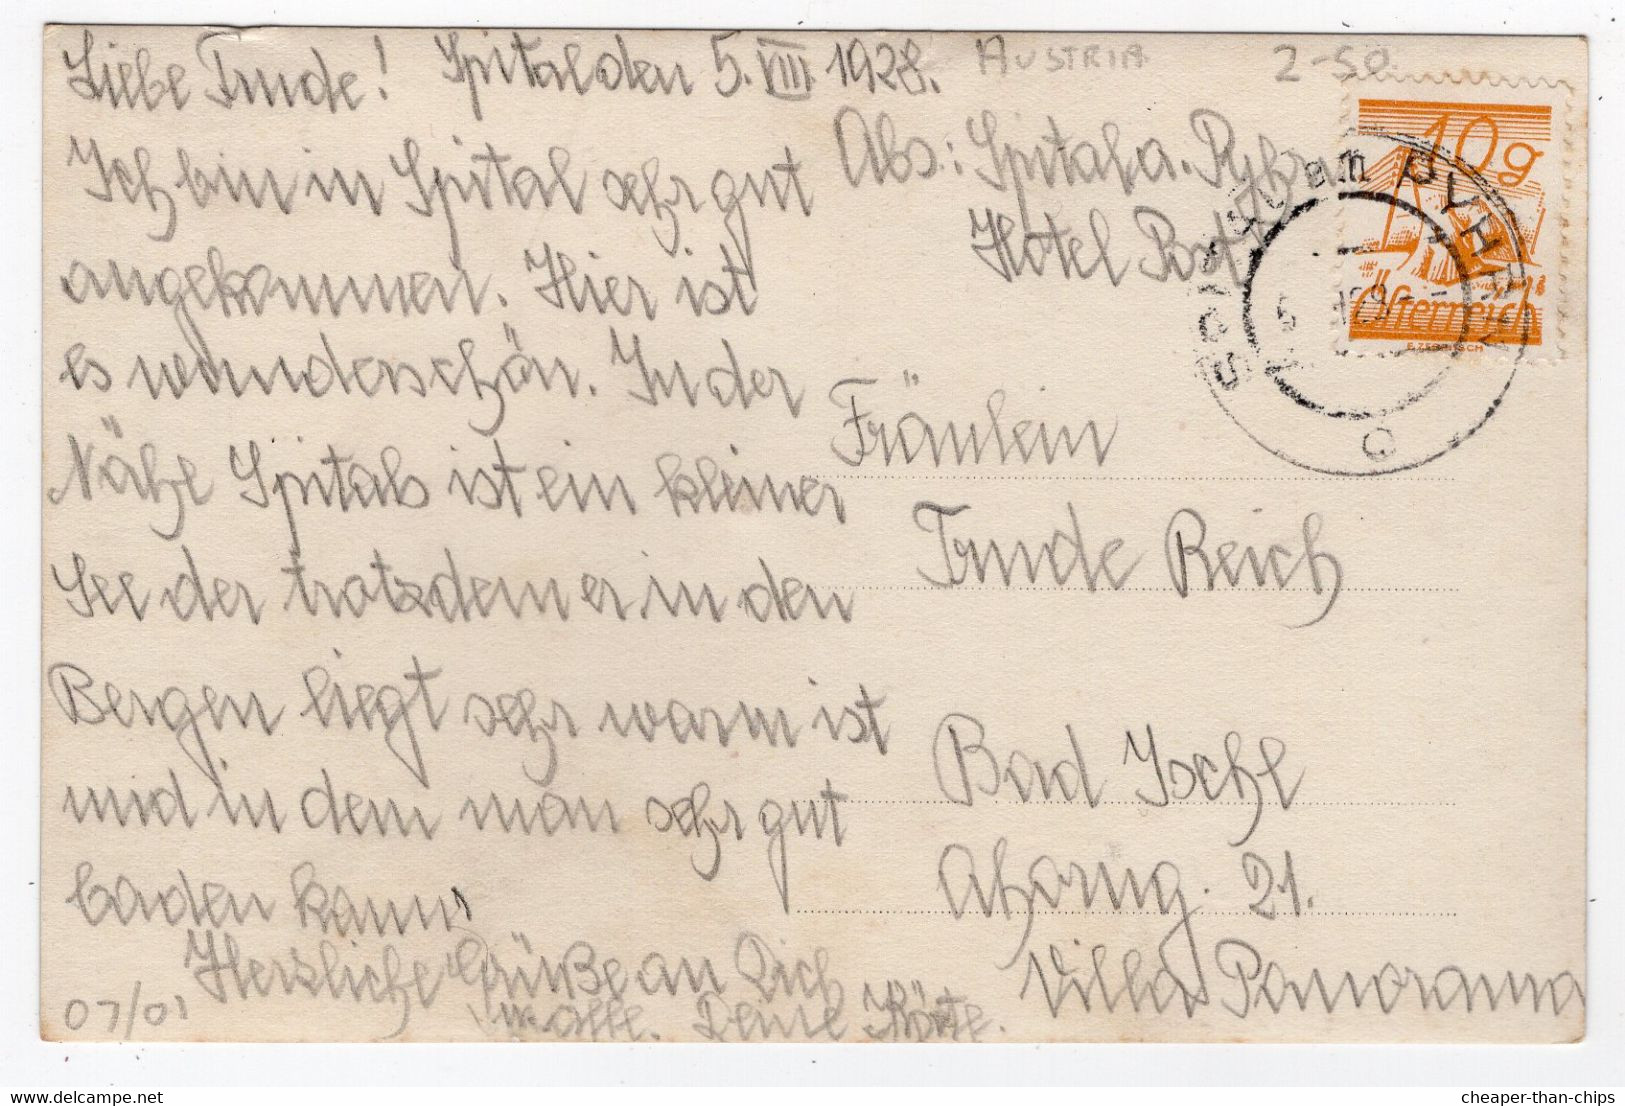 Liebe Trude! Spital den 5. VIII. 1928.
Ich bin in Spital sehr gut
angekommen. Hier ist
es wunderschön. In der
Nähe Spitals ist ein kleiner
See der trotzdem er in den
Bergen liegt sehr warm ist
und in dem man sehr gut
baden kann.
Herzliche Grüße an Dich
u. alle. Deine
07/01
AUSTRIA 2-50.
Abs.: Spital a. Pyhrn
Hotel Post
10g
Österreich
SPITAL am PYHRN
Fräulein
Trude Reich
Bad Ischl
21.
Villa Panorama
cheaper-than-chips